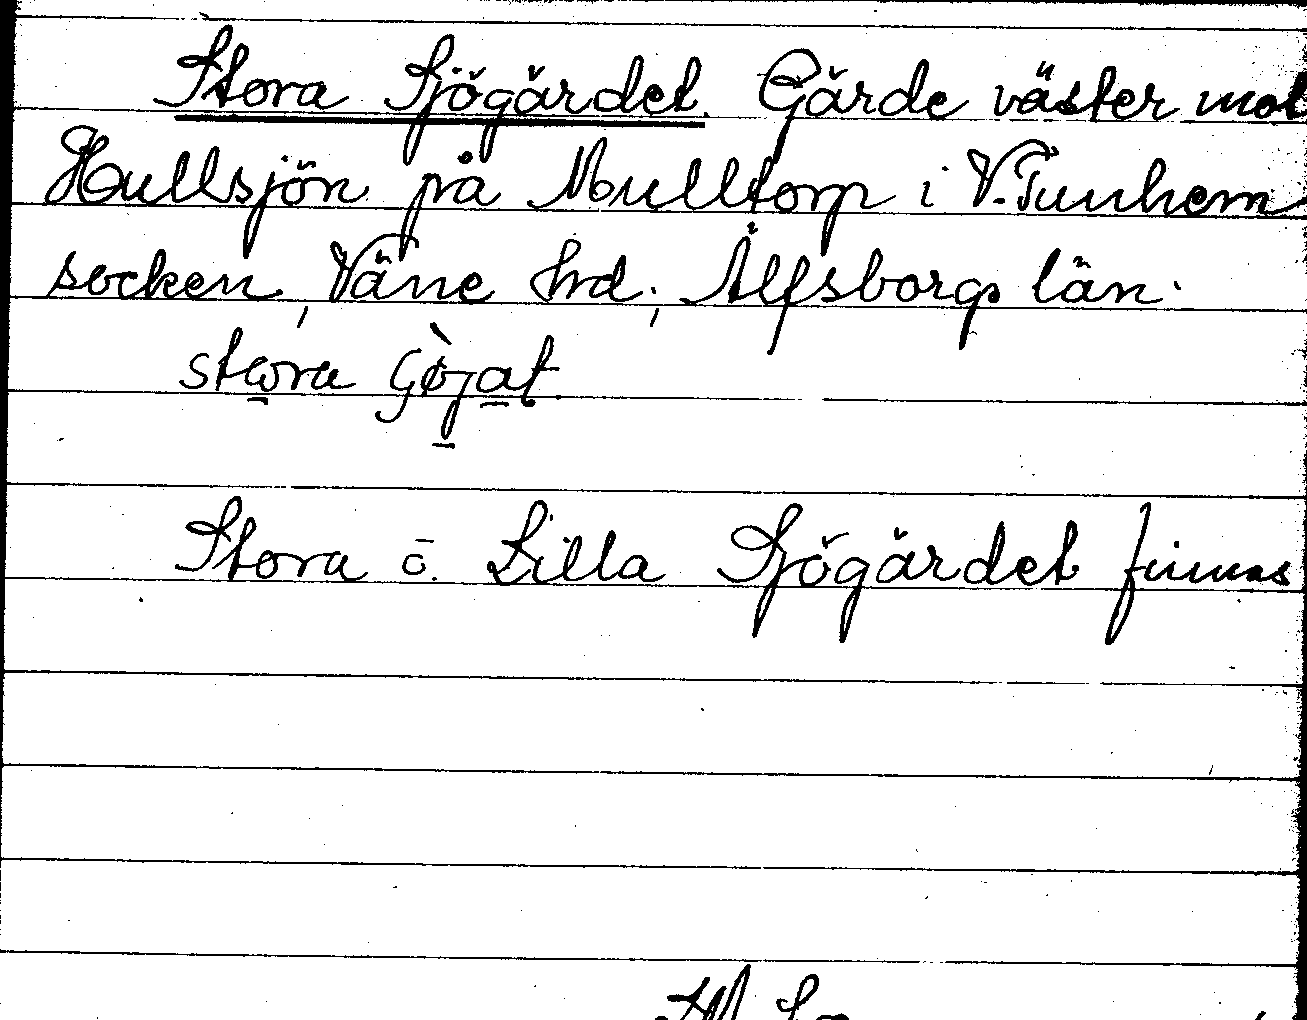 Stora Sjögärdet. Gärde väster mot
Hullsjön på Mulltorp i V. Tunhem
socken, Väne hrd, Älfsborgs län.
Stora o. Lilla Sjögärdet finnas